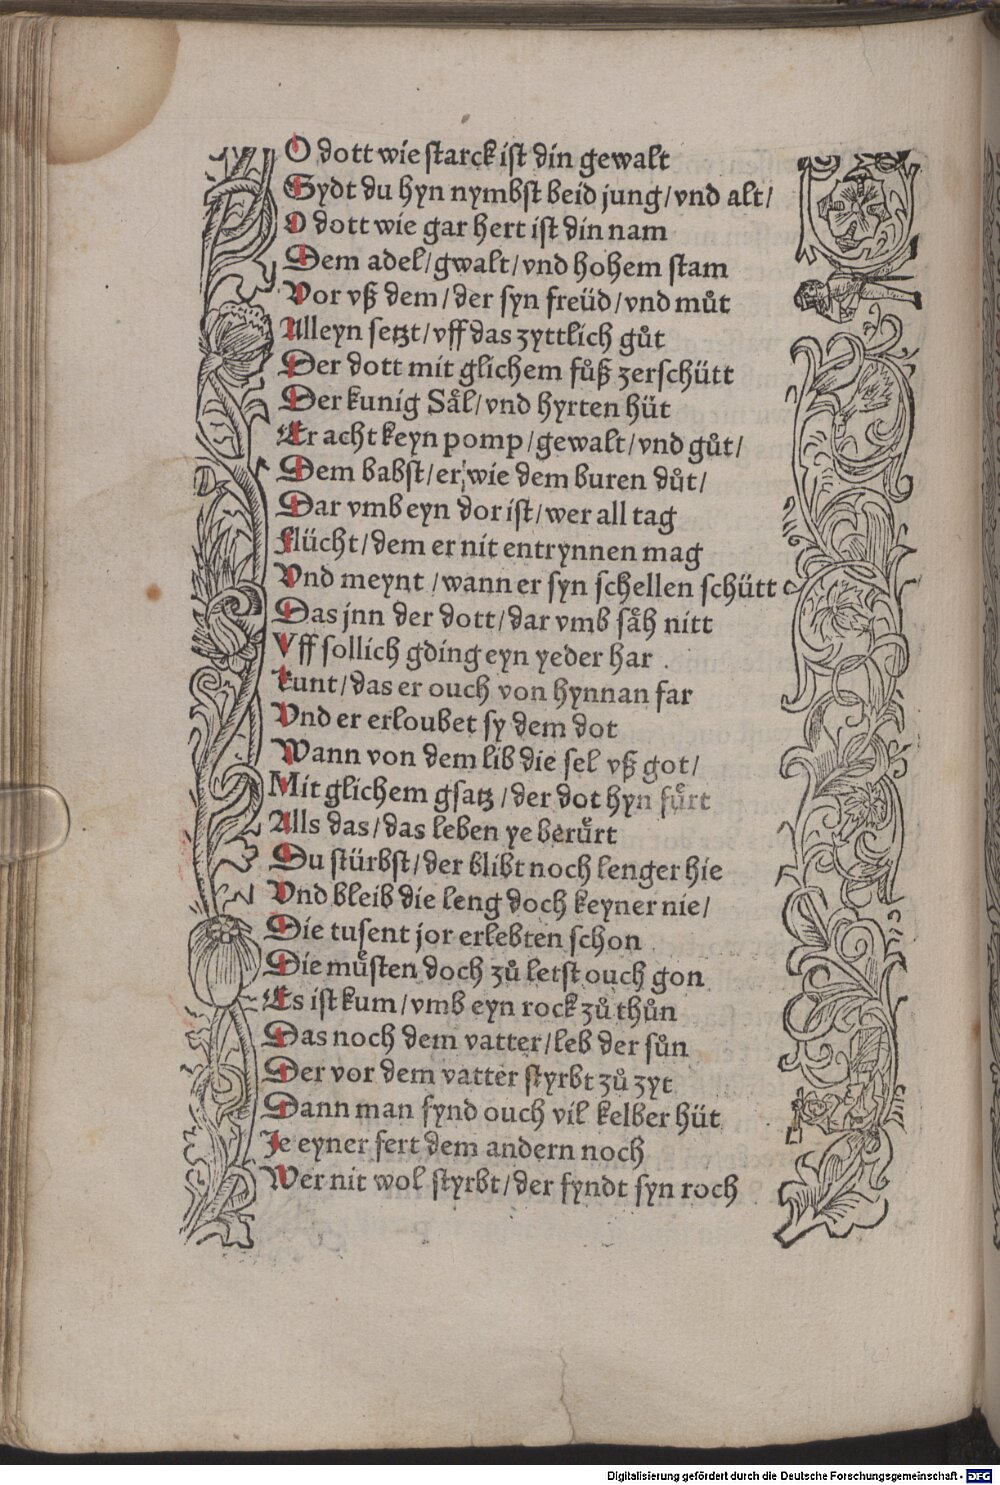 O dott wie starck ist din gewalt
Sydt du hyn nymbst beid jung/vnd alt/
O dott wie gar hert ist din nam
Dem adel/gwalt/vnd hohem stam
Vor vß dem/der syn freüd/vnd můt
Alleyn setzt/vff das zyttlich gůt
Der dott mit glichem fůß zerschütt
Der kunig Sål/vnd hyrten hüt
Er acht keyn pomp/gewalt/vnd gůt/
Dem babst/er wie dem buren důt/
Dar vmb eyn dor ist/wer all tag
Flücht/dem er nit entrynnen mag
Vnd meynt/wann er syn schellen schütt
Das jnn der dott/dar vmb såh nitt
Vff sollich gding eyn yeder har
kunt/das er ouch von hynnan far
Vnd er erloubet sy dem dot
Wann von dem lib die sel vß got/
Mit glichem gsatz/der dot hyn fůrt
Alls das/das leben ye berůrt
Du stürbst/der blibt noch lenger hie
Vnd bleib die leng doch keyner nie/
Die tusent jor erlebten schon
Die můsten doch zů letst ouch gon
Es ist kum/vmb eyn rock zů thůn
Das noch dem vatter/leb der sůn
Der vor dem vatter styrbt zů zyt
Dann man fynd ouch vil kelber hüt
Je eyner fert dem andern noch
Wer nit wol styrbt/der fyndt syn roch
Digitalisierung gefördert durch die Deutsche Forschungsgemeinschaft - DFG